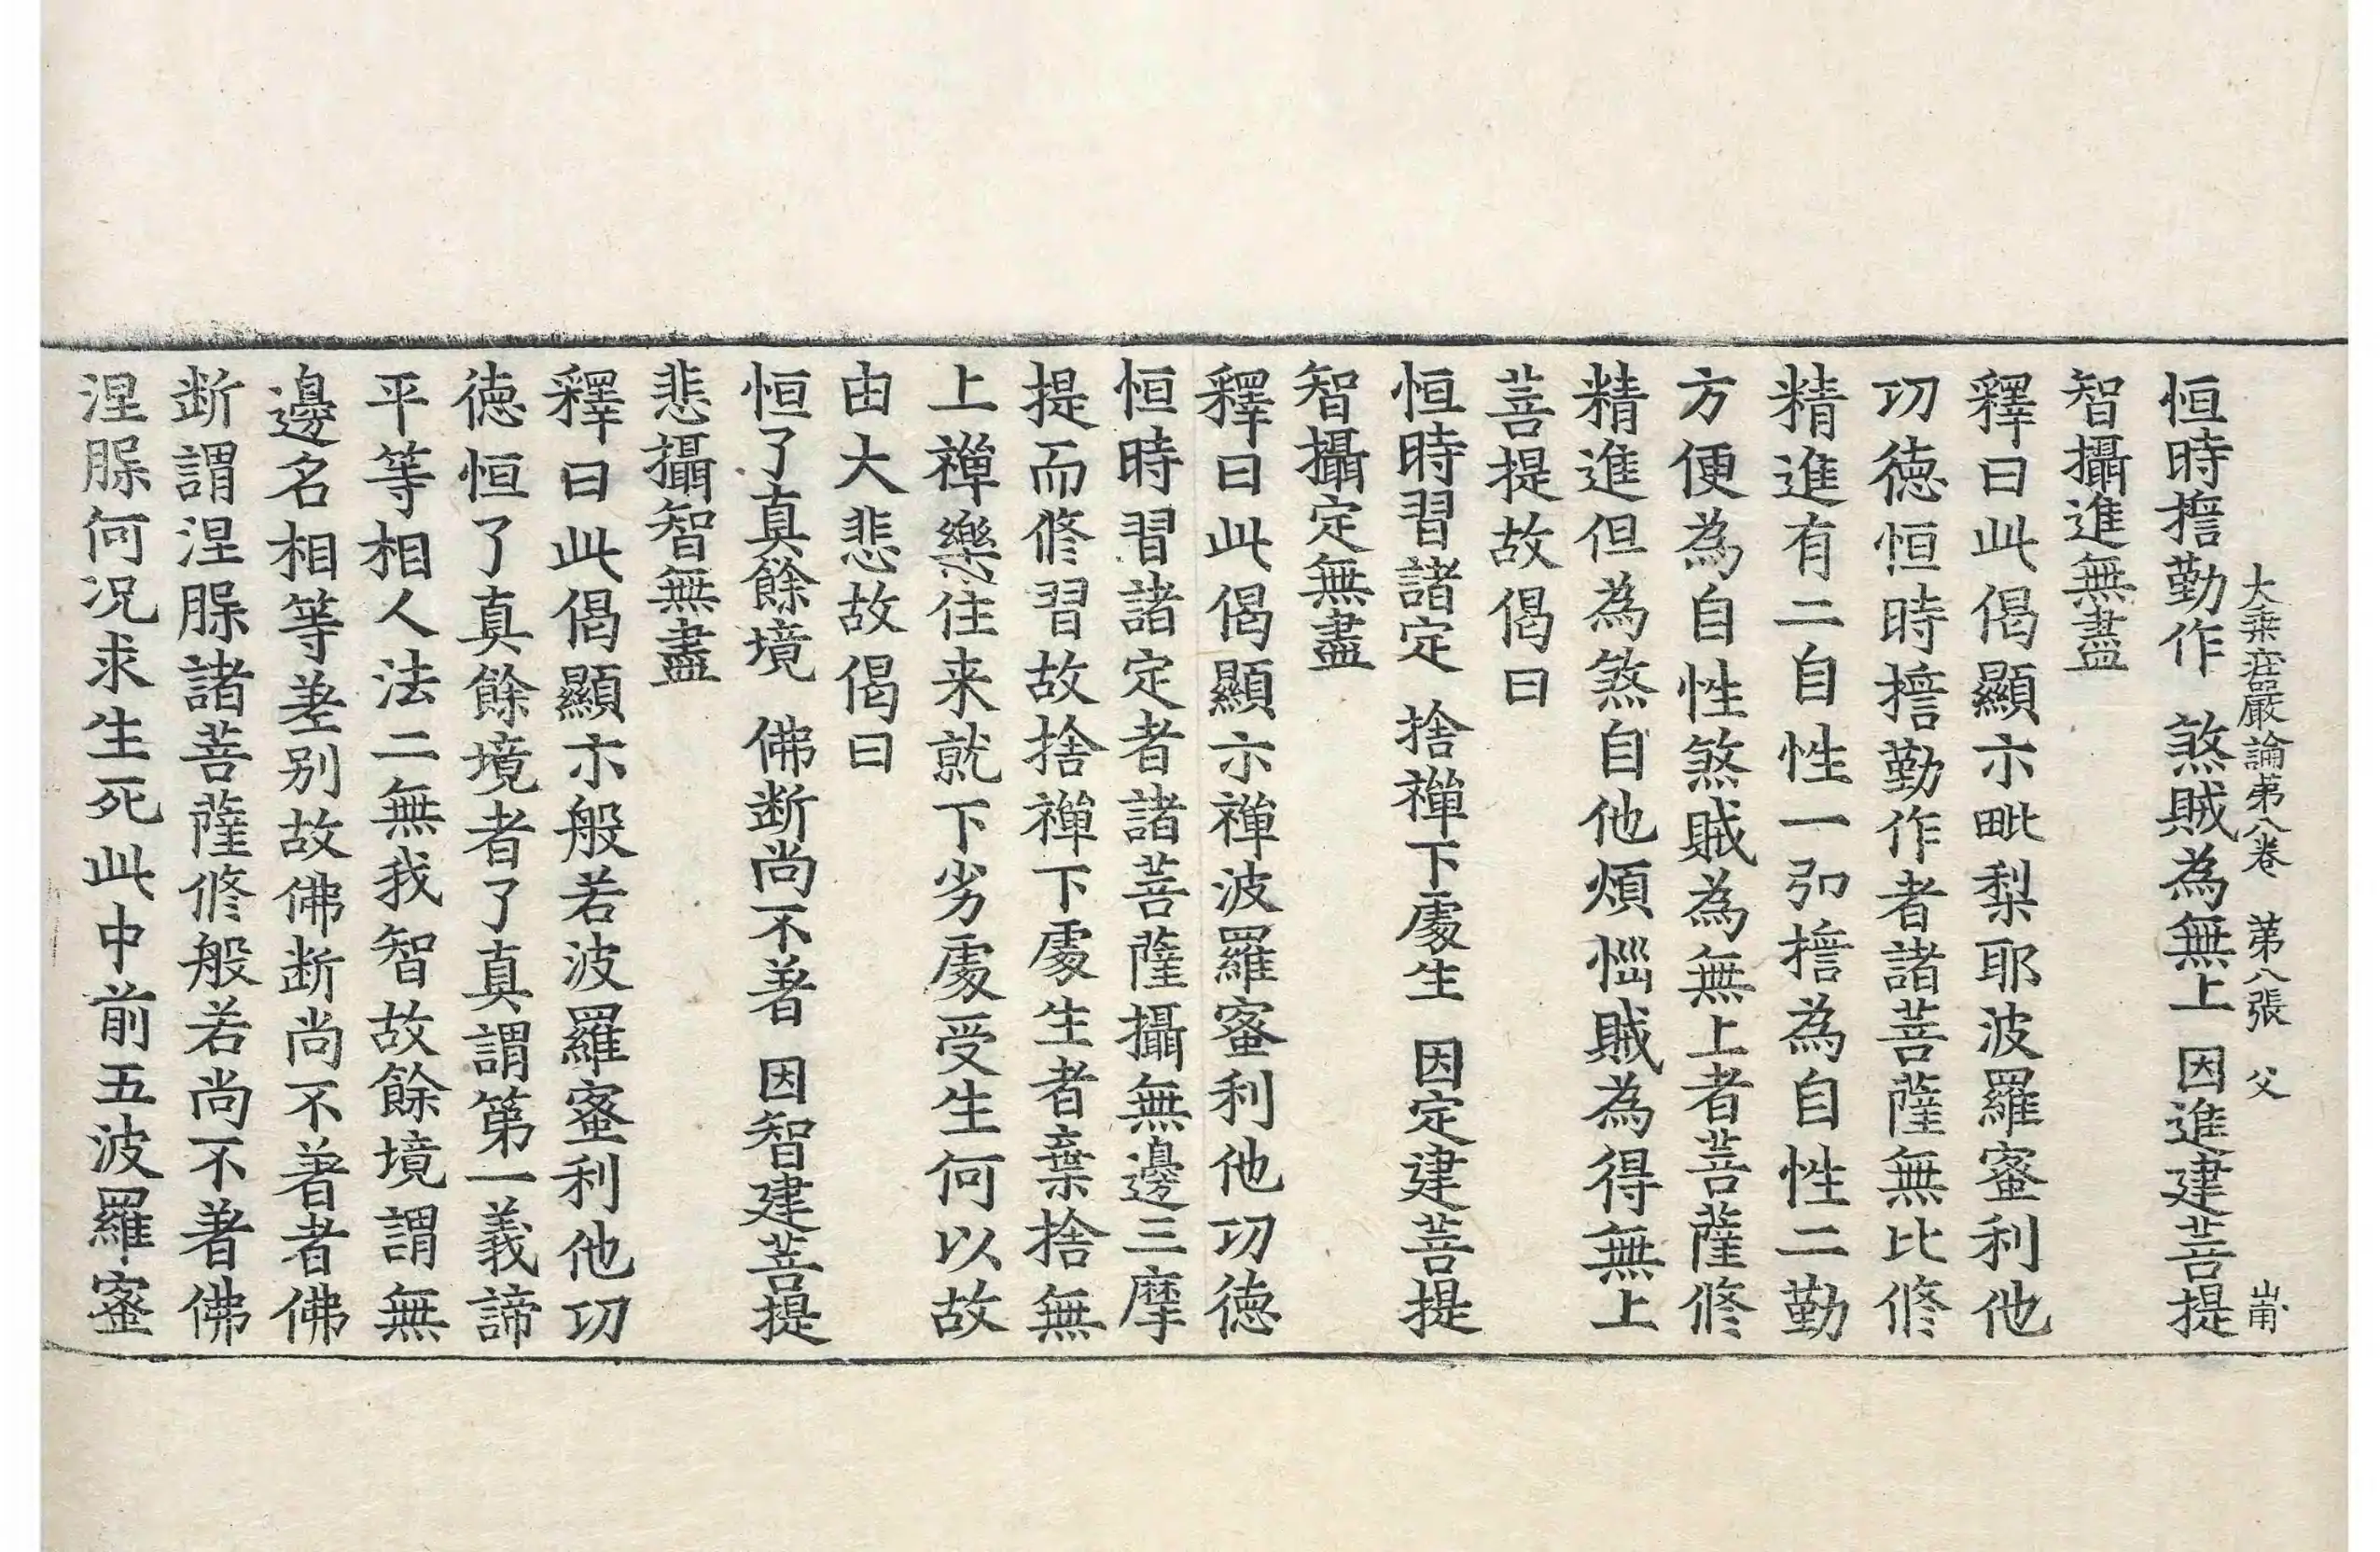 大乗庄嚴論苐八卷 苐八張 父
恒時擔勤作 煞賊為無上 因進建菩提
智攝進無盡
釋曰此偈顯示毗梨耶波羅蜜利他
功德恒時擔勤作者諸菩薩無比修
精進有二自性一弘擔為自性二勤
方便為自性煞賊為無上者菩薩修
精進但為煞自他煩惱賊為得無上
菩提故偈曰
恒時習諸定 捨禪下處生 因定建菩提
智攝定無盡
釋曰此偈顯示禪波羅蜜利他功德
恒時習諸定者諸菩薩攝無邊三摩
提而修習故捨禪下處生者棄捨無
上禪樂住来就下劣處受生何以故
由大悲故偈曰
恒了真餘境 佛断尚不著 因智建菩提
悲攝智無盡
釋曰此偈顯示般若波羅蜜利他功
德恒了真餘境者了真謂第一義諦
平等相人法二無我智故餘境謂無
邊名相等差别故佛断尚不著者佛
断謂涅脲諸菩薩修般若尚不著佛
涅脲何况求生死此中前五波羅蜜